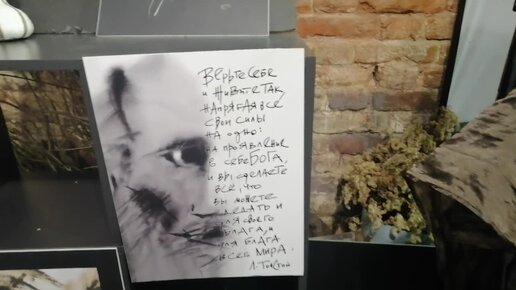 Верьте себе
и живите так,
напрягая все
свои силы
на одно:
на проявление
в себе Бога,
и вы сделаете
всё, что
вы можете
сделать и
для своего
блага, и
для блага
всего мира.
Л. Толстой